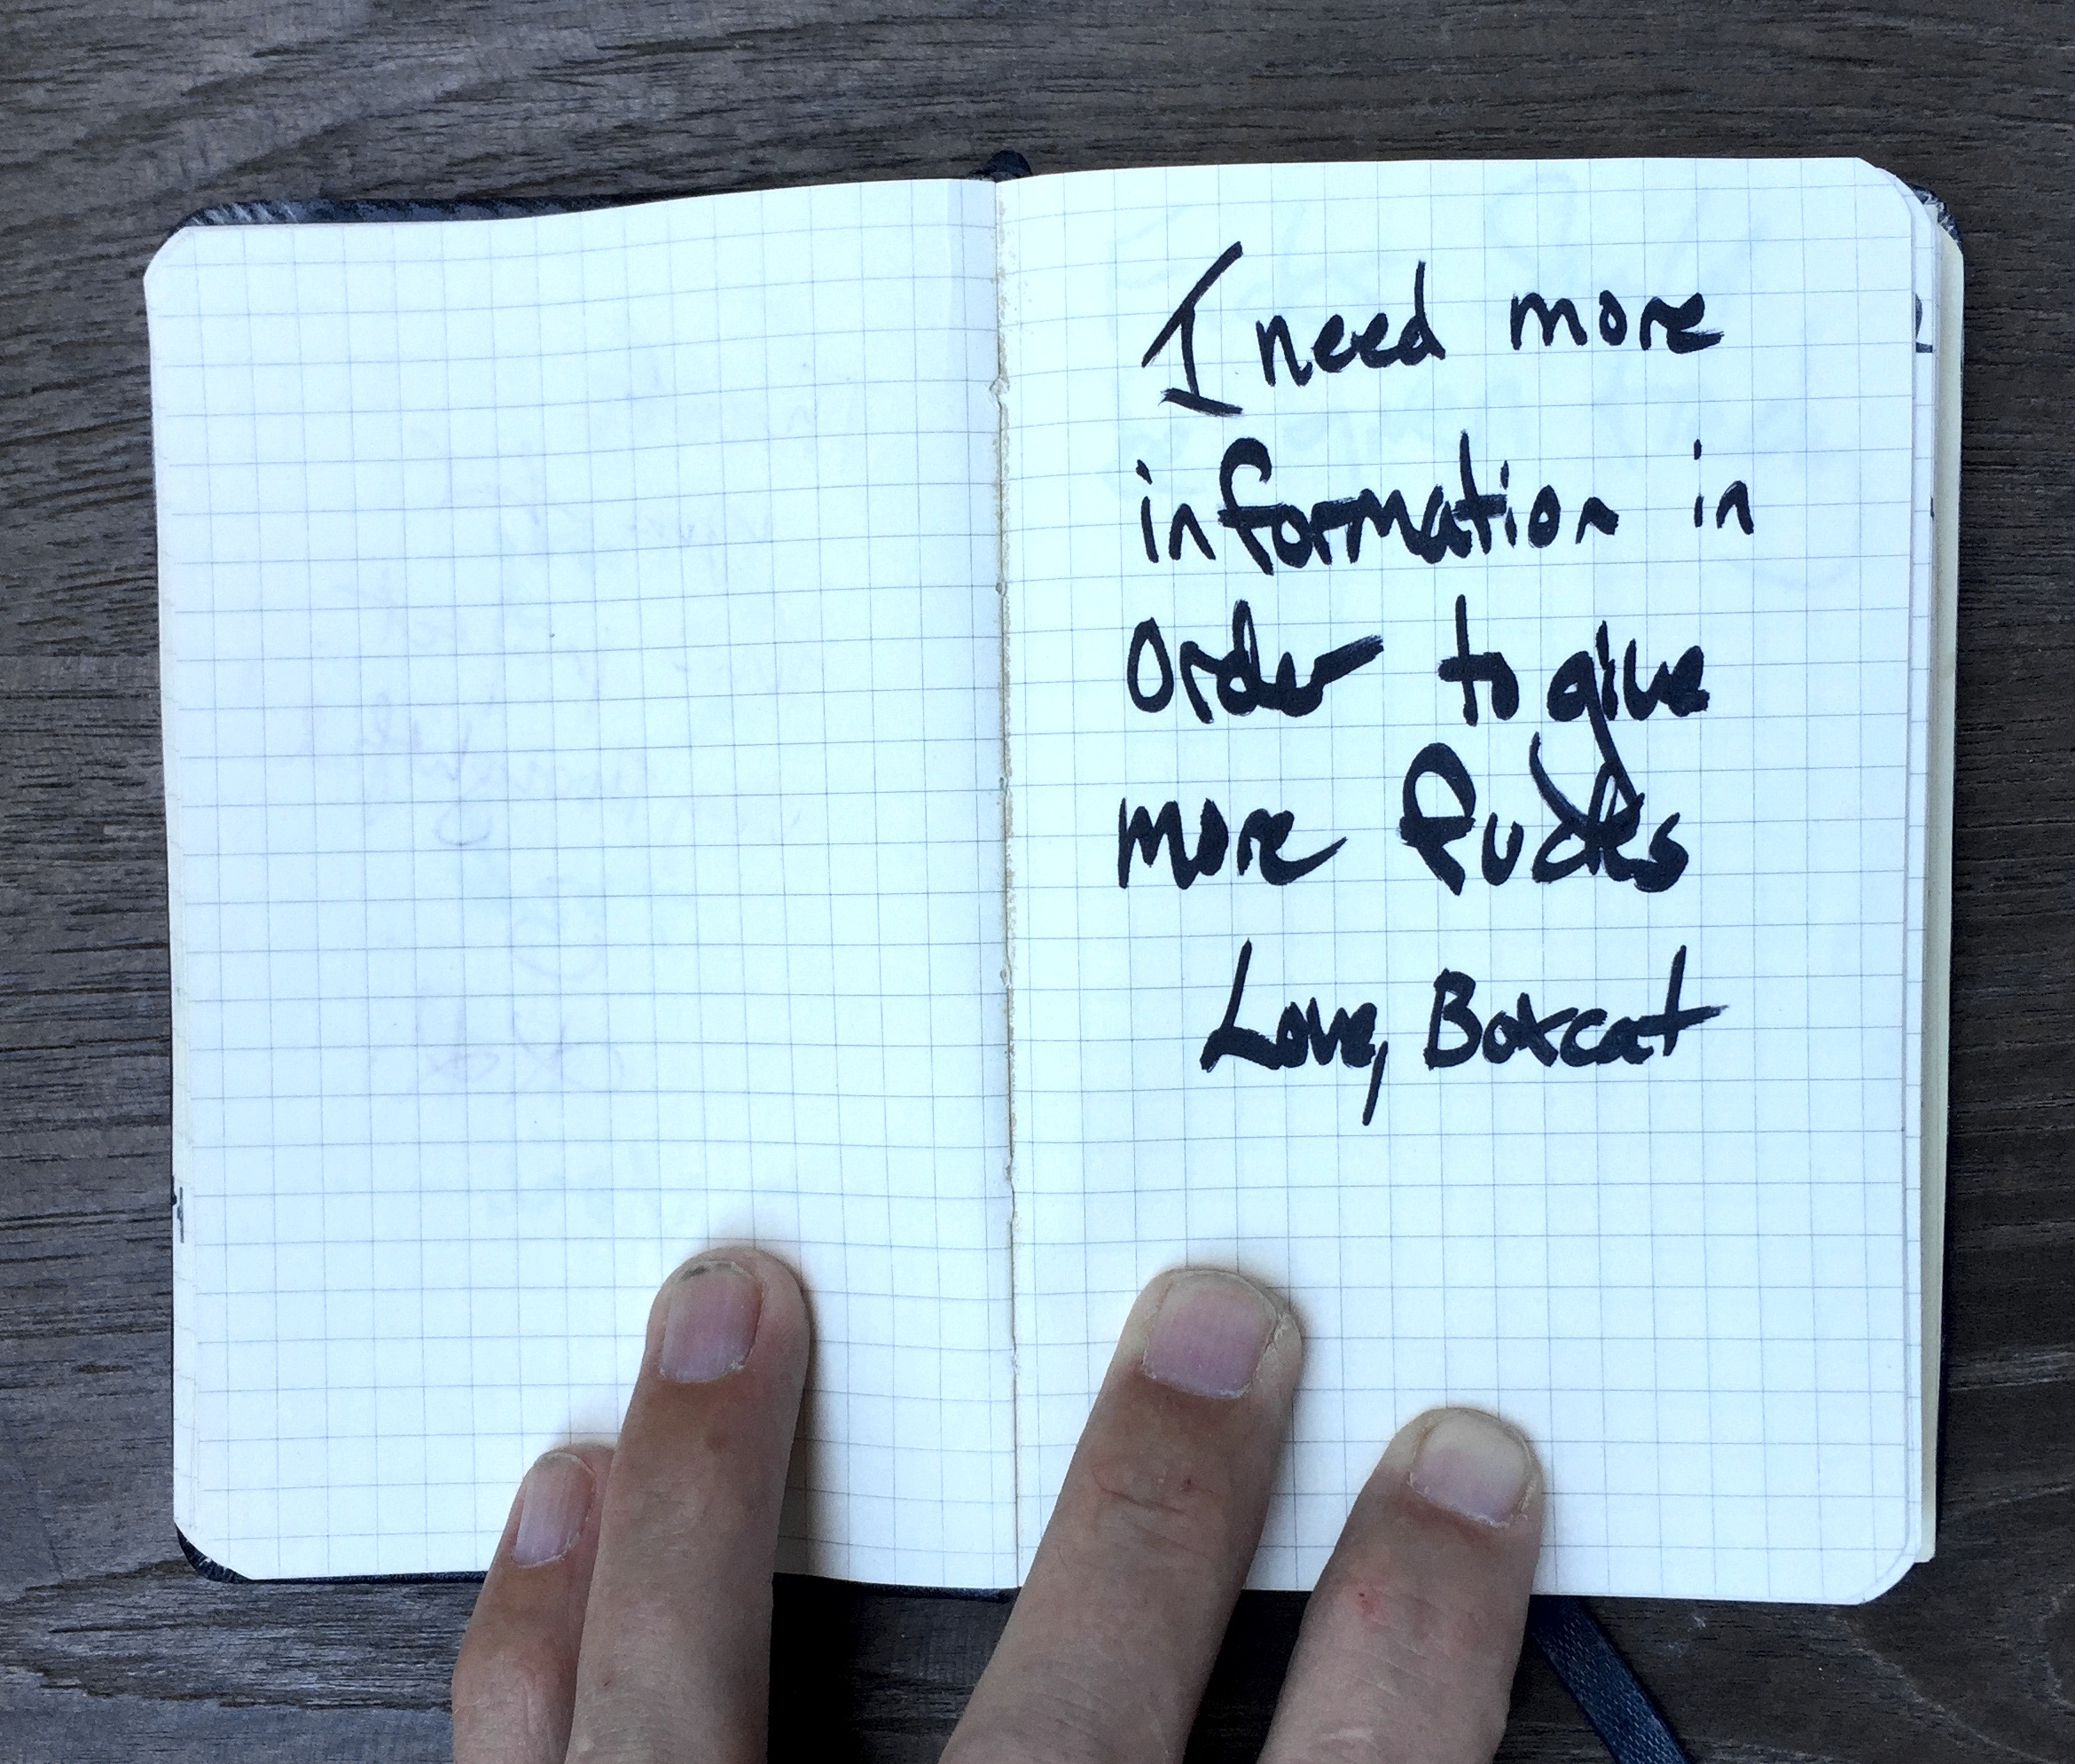 I need more
information in
Order to give
more fucks
Love, Boxcat